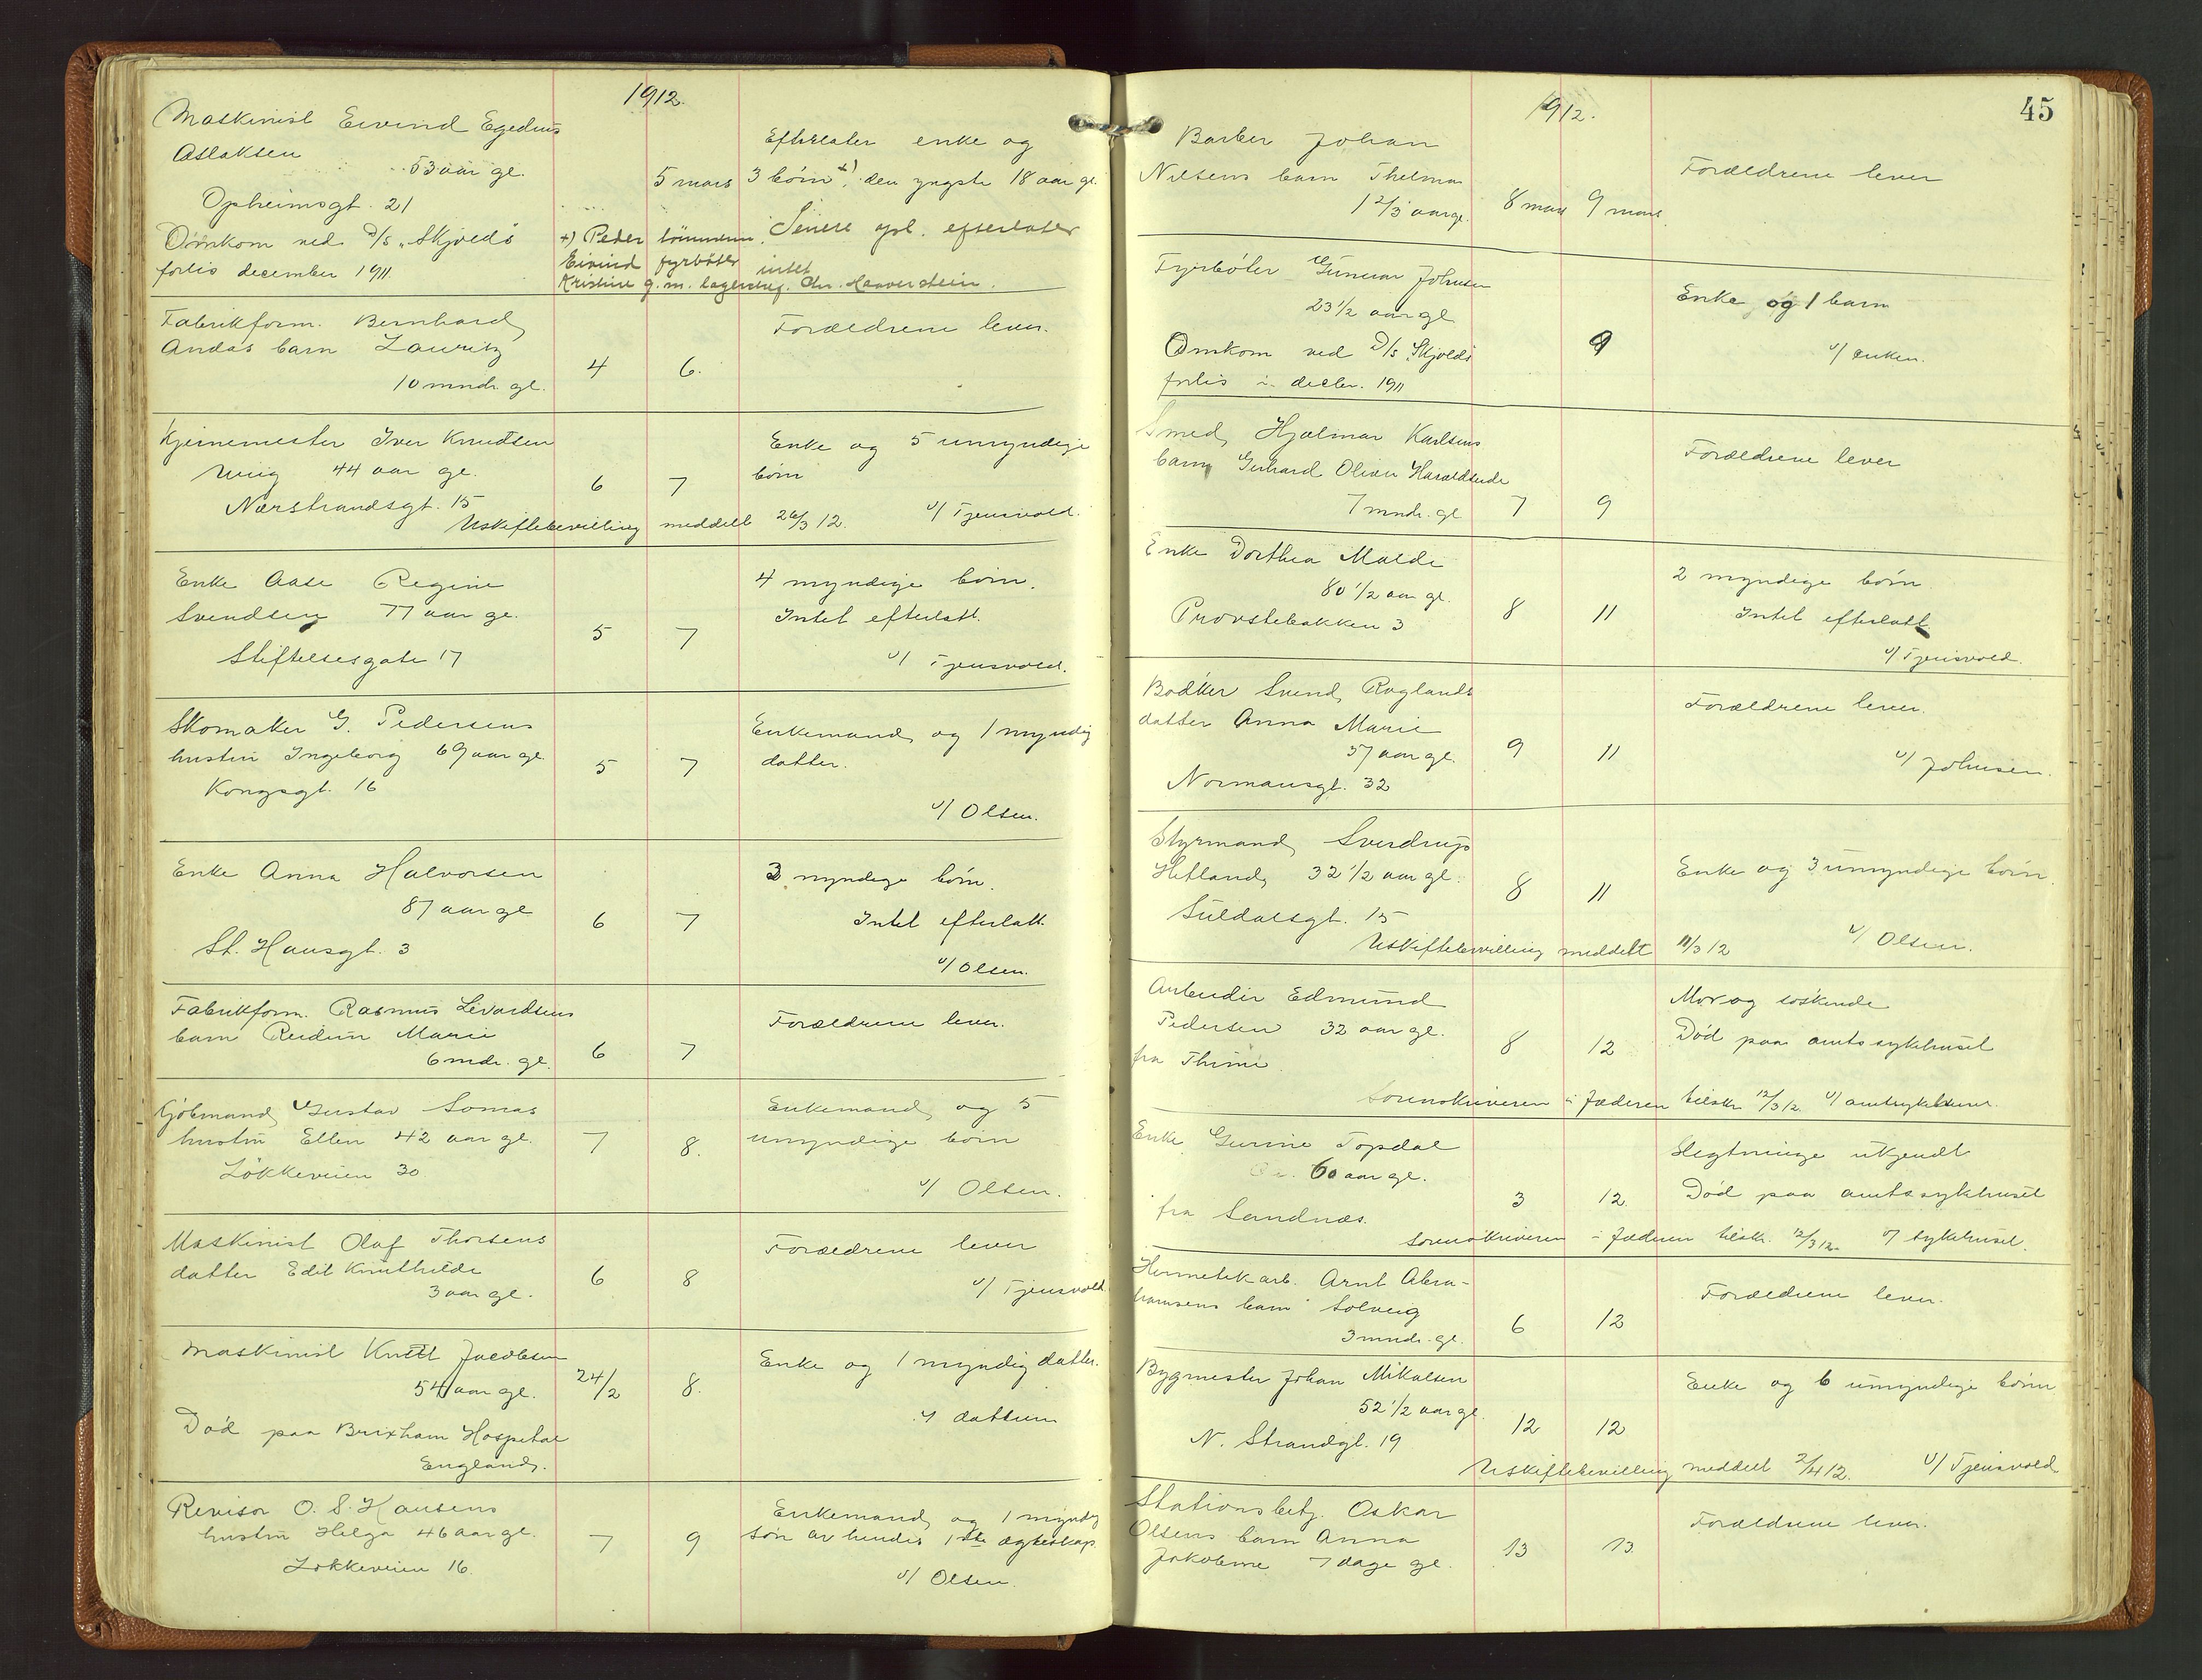 1912.
Maskinist Eivind Egedius
Aslaksen
53 aar gl.
Opheimsgt. 21
Omkom ved D/S "Skjolds
forlis december 1911
5 mars
Efterlater enke og
3 børn +), den yngste 18 aar gl.
Senere opl. efterlater
intet
+) Peder tømmerm.
Eivind fyrbøter
Kristine g. m. lagerexp. Chr. Haaverstein.
Fabrikform. Bernhard
Andas barn Lauritz
10 mndr. gl.
4
6.
Forældrene lever.
Kjernemester Iver Knudsen
44 aar gl.
Nærstrandsgt. 15
6
7
Enke og 5 umyndige
børn
v/ Tjensvold.
Uskiftebevilling meddelt 26/3 12.
Enke Aase Regine
Svendsen 77 aar gl.
Stiftelsesgate 17
5
7
4 myndige børn.
Intet efterlatt.
v/ Tjensvold.
Skomaker G. Pedersens
hustru Ingeborg 69 aar gl.
Kongsgt. 16
5
7
Enkemand og 1 myndig
datter.
v/ Olsen.
Enke Anna Halvorsen
87 aar gl
St. Hansgt. 3
6
7
3 myndige børn.
Intet efterlatt.
v/ Olsen.
Fabrikform. Rasmus Livardsens
barn Reidun Marie
6 mdr. gl.
6
7
Forældrene lever.
Gjølmand Gustav Somas
hustru Ellen 42 aar gl.
Løkkeveien 30
7
8.
Enkemand og 5
umyndige børn
v/ Olsen.
Maskinist Olaf Thorsens
datter Edit Knuthilde
3 aar gl.
6
8
Forældrene lever
v/ Tjensvold
Maskinist Knut Jacobsen
54 aar gl.
Død paa Brixham Hospital
England.
24/2
8.
Enke og 1 myndig datter.
v/ datteren
Revisor O. S. Hansens
hustru Helga 46 aar gl.
Løkkeveien 16.
7
9
Enkemand og 1 myndig
søn av hendes 1ste egteskap.
v/ Olsen.
45
1912.
Barber Johan
Nilsens barn Thelma
1 2/3 aar gl.
8 mars
9 mars
Forældrene lever
Fyrbøter Gunnar Johnsen
23 1/2 aar gl
Omkom ved D/S Skjolds
forlis i decbr. 1911
9
Enke og 1 barn
v/ enken.
Smed Hjalmar Karlsens
barn Gerhard Oliver Haraldseide
7 mndr. gl
7
9
Forældrene lever
Enke Dorthea Malde
80 1/2 aar gl.
Provstebakken 3
8
11
2 myndige børn.
Intet efterlatt
v/ Tjensvold.
Bødker Svend Roglands
datter Anna Marie
37 aar gl.
Normansgt. 32
9
11
Forældrene lever.
v/ Johnsen.
Styrmand Sverdrup
Hetland 32 1/2 aar gl.
Suldalsgt. 15
8
11
Enke og 3 umyndige børn.
v/ Olsen.
Uskiftebevilling meddelt 11/3 12
Arbeider Edmund
Pedersen 32 aar gl.
fra Thime
8
12
Mor og søskende
Død paa amtssykehuset
Sorenskriveren i Jæderen tilskr. 12/3 12. v/ amtsykehuset.
Enke Gurine Topdal
Ca. 60 aar gl.
fra Sandnæs.
3
12.
Slegtninge ukjendt
Død paa amtssykehuset
Sorenskriveren i Jæderen tilskr. 12/3 12. v/ sykehuset.
Hermetikarb. Arnt Abra-
hamsens barn Solveig
3 mndr. gl.
6
12
Forældrene lever.
Bygmester Johan Mikalsen
52 1/2 aar gl.
N. Strandgt. 19
12
12
Enke og 6 umyndige børn
v/ Tjensvold
Uskiftebevilling meddelt 2/4 12.
Stationsbetj. Oskar
Olsens barn Anna
Jakobine 7 dage gl.
13
13.
Forældrene lever.